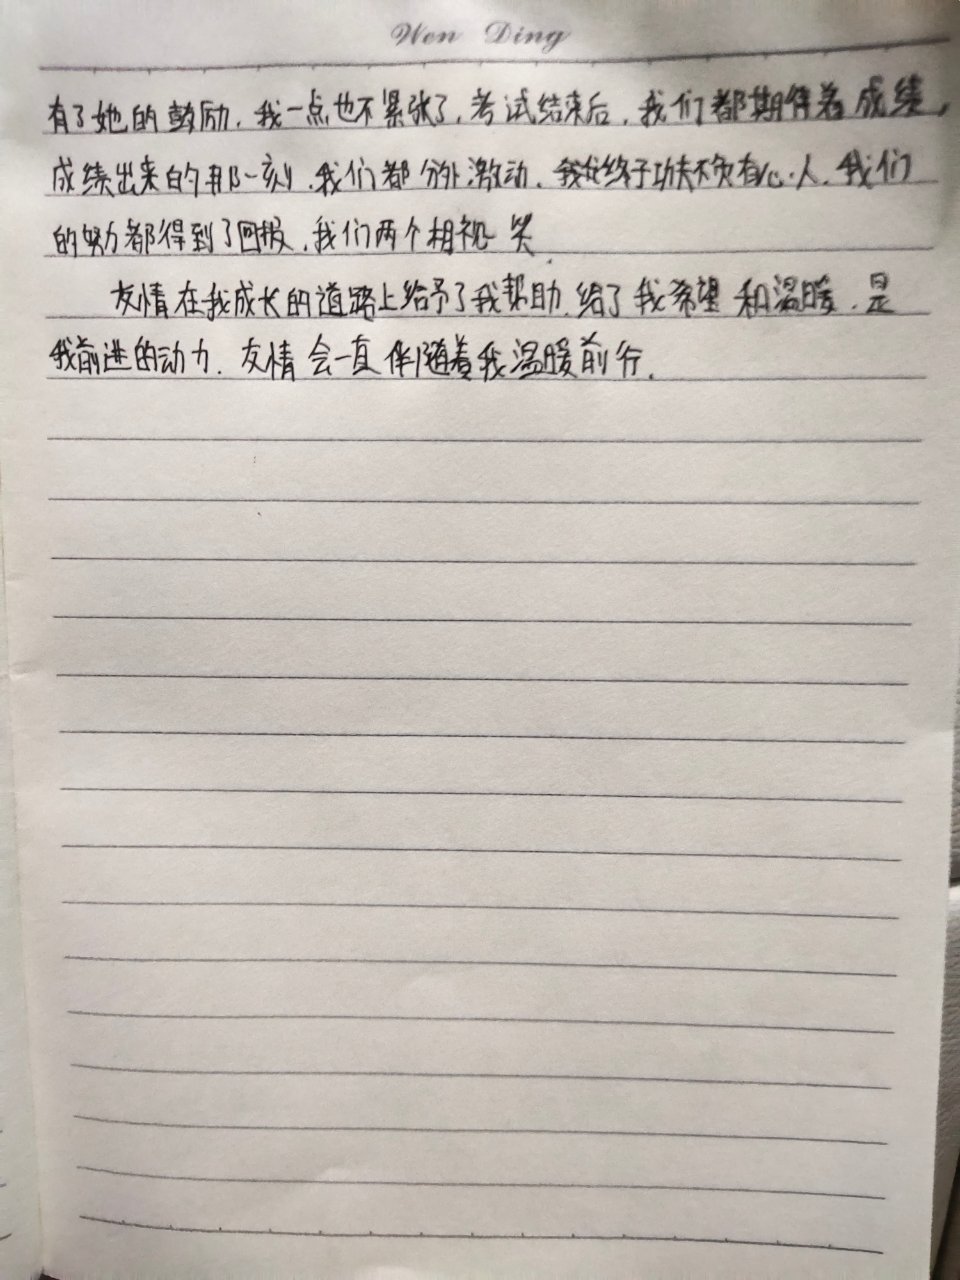 Wen Ding
有了她的鼓励，我一点也不紧张了，考试结束后，我们都期待着成绩，
成绩出来的那一刻，我们都分外激动，终于功夫不负有心人，我们
的努力都得到了回报，我们两个相视一笑
友情在我成长的道路上给予了我帮助，给了我希望和温暖，是
我前进的动力，友情会一直伴随着我温暖前行。